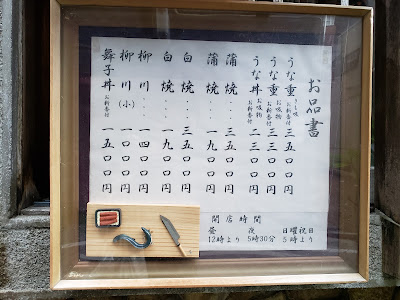 お品書
うな重 きも吸 お新香付 三五〇〇円
うな重 お吸物 お新香付 三三〇〇円
うな丼 お吸物 お新香付 二三〇〇円
蒲焼・・三五〇〇円
蒲焼・・一九〇〇円
白焼・・・三五〇〇円
白焼・・・一九〇〇円
柳川・・・一四〇〇円
柳川(小)一〇〇〇円
舞子丼 お新香付 一五〇〇円
開店時間
昼 夜 日曜祝日
12時より 5時30分 5時より